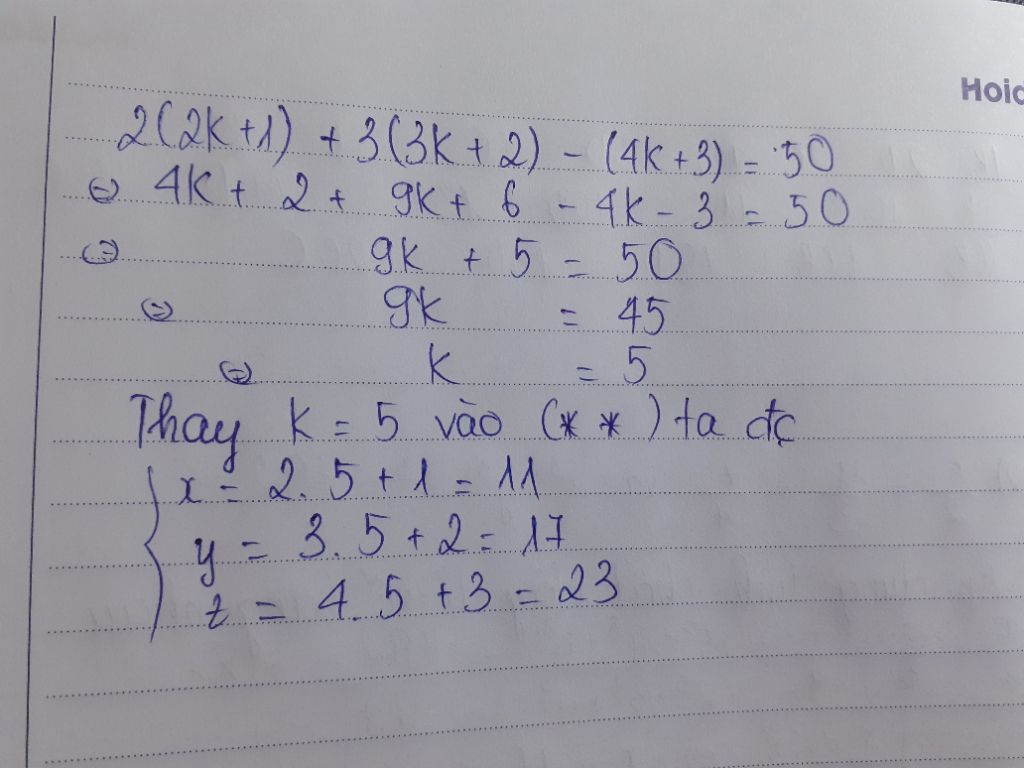 Hoid
2(2k+1) + 3(3k+2) - (4k+3) = 50
⇔ 4k + 2 + 9k + 6 - 4k - 3 = 50
⇔ 9k + 5 = 50
⇔ 9k = 45
⇔ k = 5
Thay k = 5 vào (* *) ta đc
x = 2.5 + 1 = 11
y = 3.5 + 2 = 17
z = 4.5 + 3 = 23